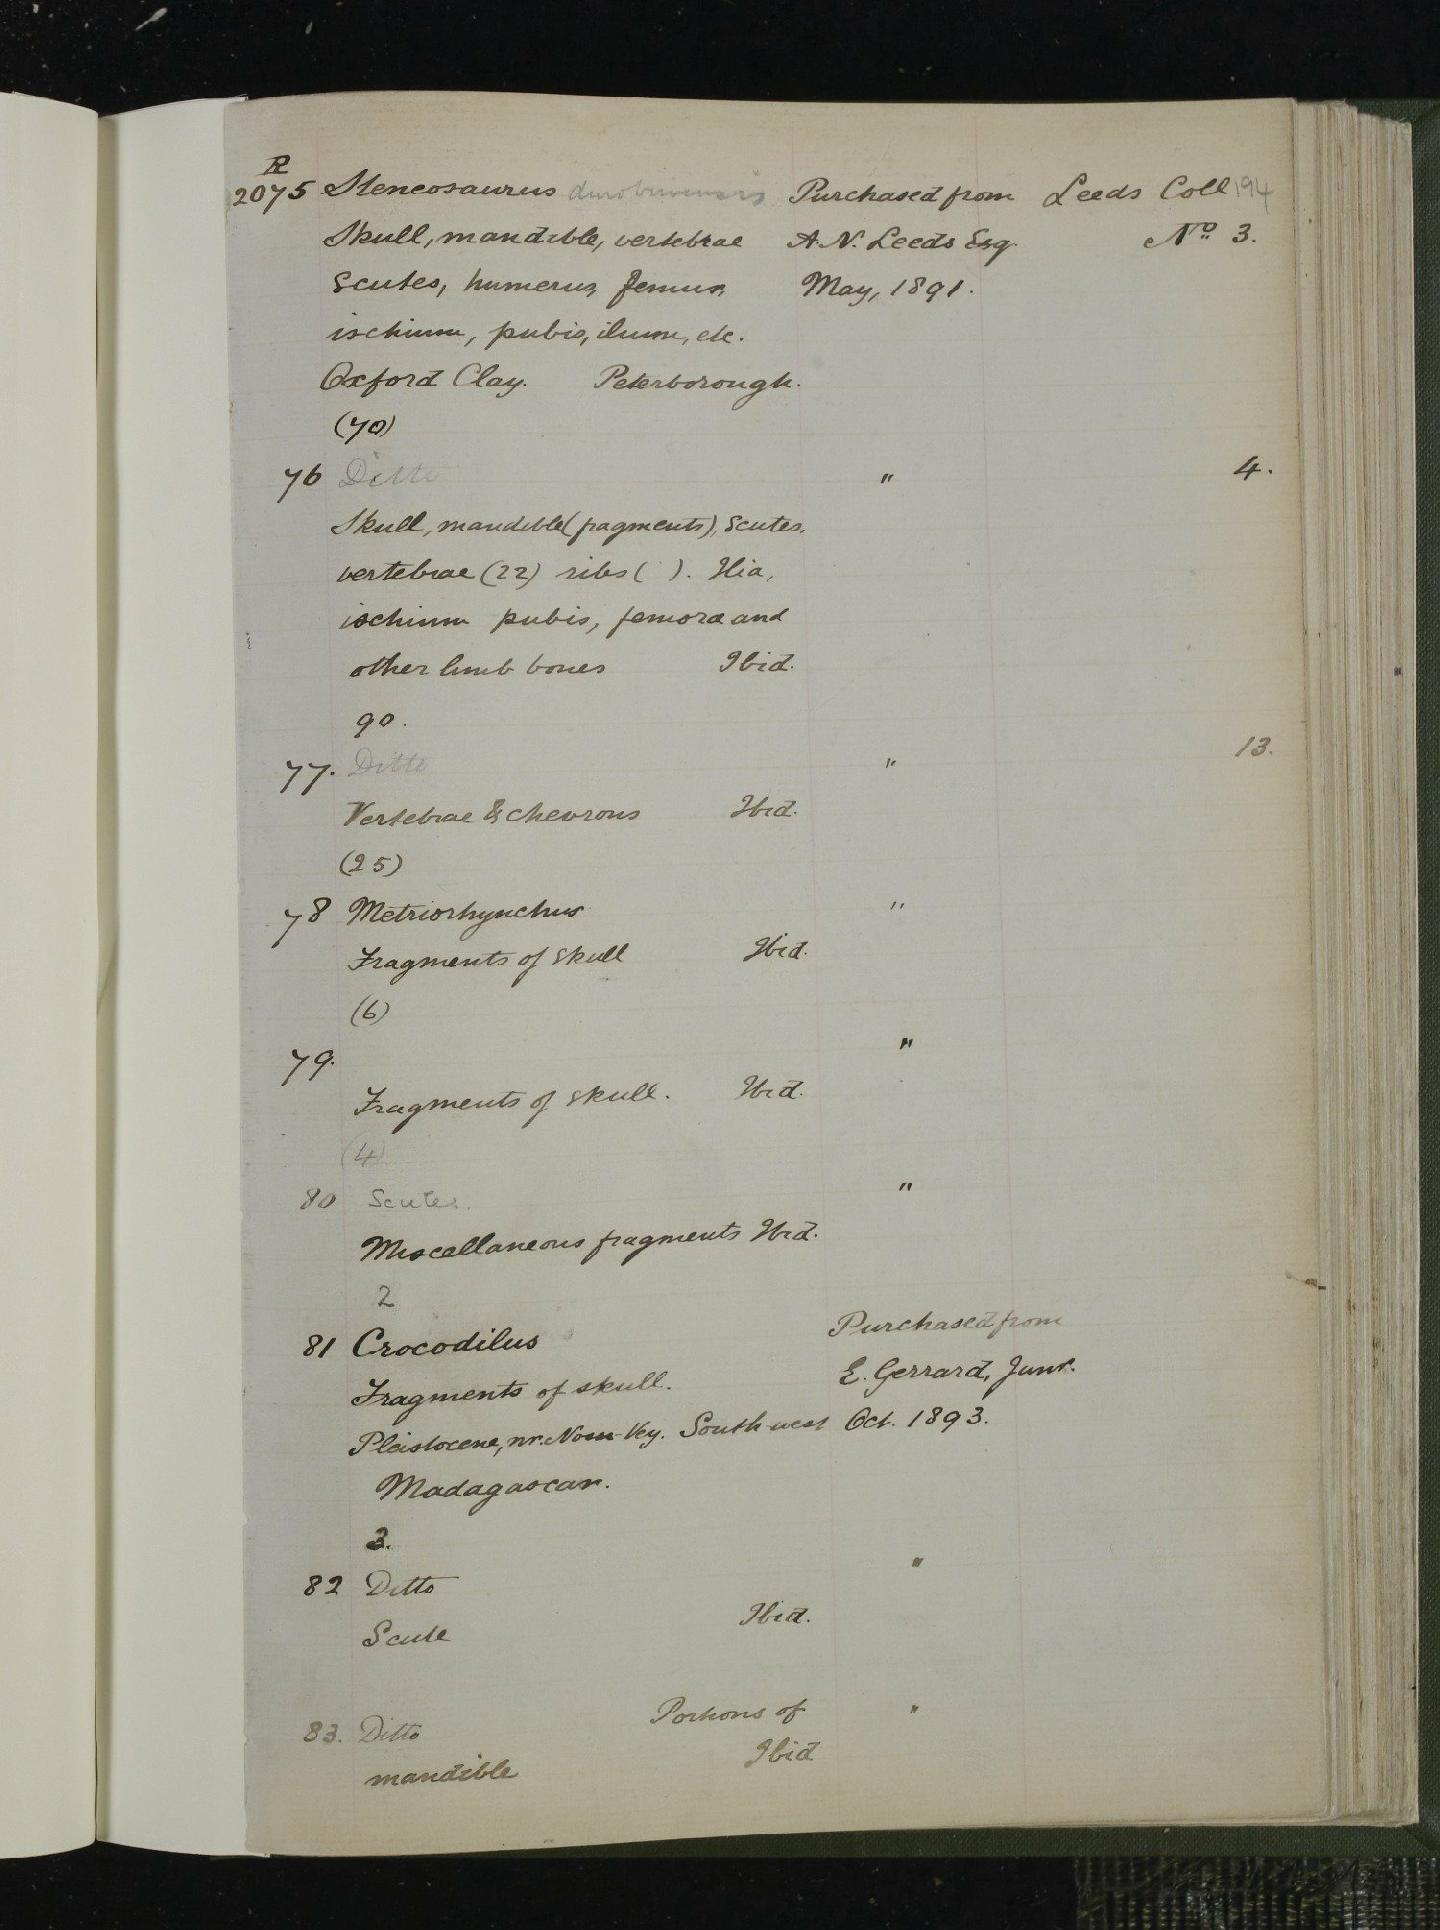 R
2075 Steneosaurus durobrivensis Purchased from Leeds Coll 194
Skull, mandible, vertebrae A. N. Leeds Esq. No. 3.
Scutes, humerus, femur, May, 1891.
ischium, pubis, ilium, etc.
Oxford Clay. Peterborough.
(70)
76 Ditto " 4.
Skull, mandible (fragments), Scutes,
vertebrae (22) ribs ( ). Ilia,
ischium pubis, femora and
other limb bones Ibid.
90.
77. Ditto " 13.
Vertebrae & chevrons Ibid.
(25)
78 Metriorhynchus "
Fragments of skull Ibid.
(6)
79. "
Fragments of skull. Ibid.
(4)
80 Scutes. "
Miscellaneous fragments Ibid.
2
81 Crocodilus Purchased from
Fragments of skull. E. Gerrard, Junr.
Pleistocene, nr. Nosi-Vey. South-west Oct. 1893.
Madagascar.
3.
82 Ditto "
Scute Ibid.
83. Ditto Portions of "
mandible Ibid